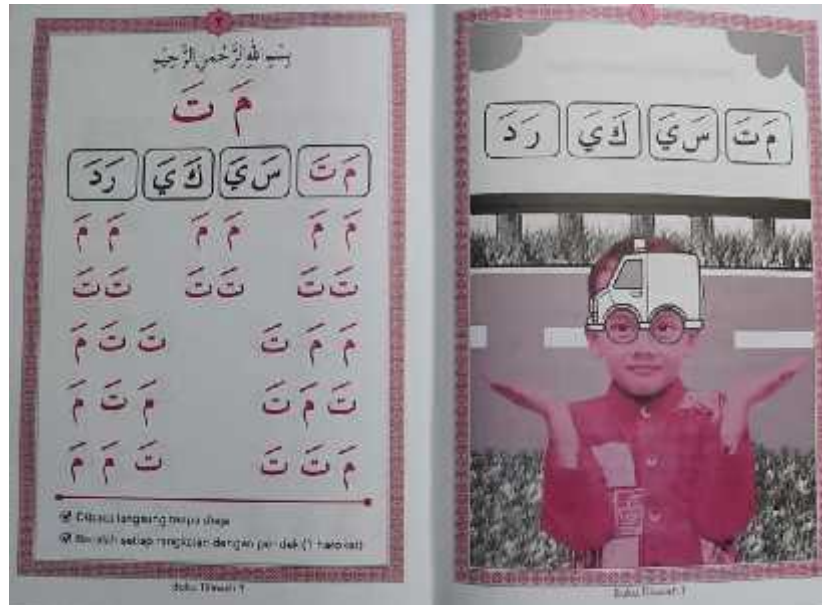 ٢
بِسْمِ اللهِ الرَّحْمٰنِ الرَّحِيْمِ
مَ تَ
مَ تَ سَ يَ كَ يَ رَ دَ
مَ مَ مَ مَ مَ مَ
تَ تَ تَ تَ تَ تَ
مَ مَ تَ تَ تَ مَ
تَ مَ تَ مَ تَ مَ
مَ تَ تَ تَ مَ مَ
Dibaca langsung tanpa dieja
setiap rangkaian dengan pendek (1 harokat)
Buku Tilawah 1
مَ تَ سَ يَ كَ يَ رَ دَ
Buku Tilawah 1